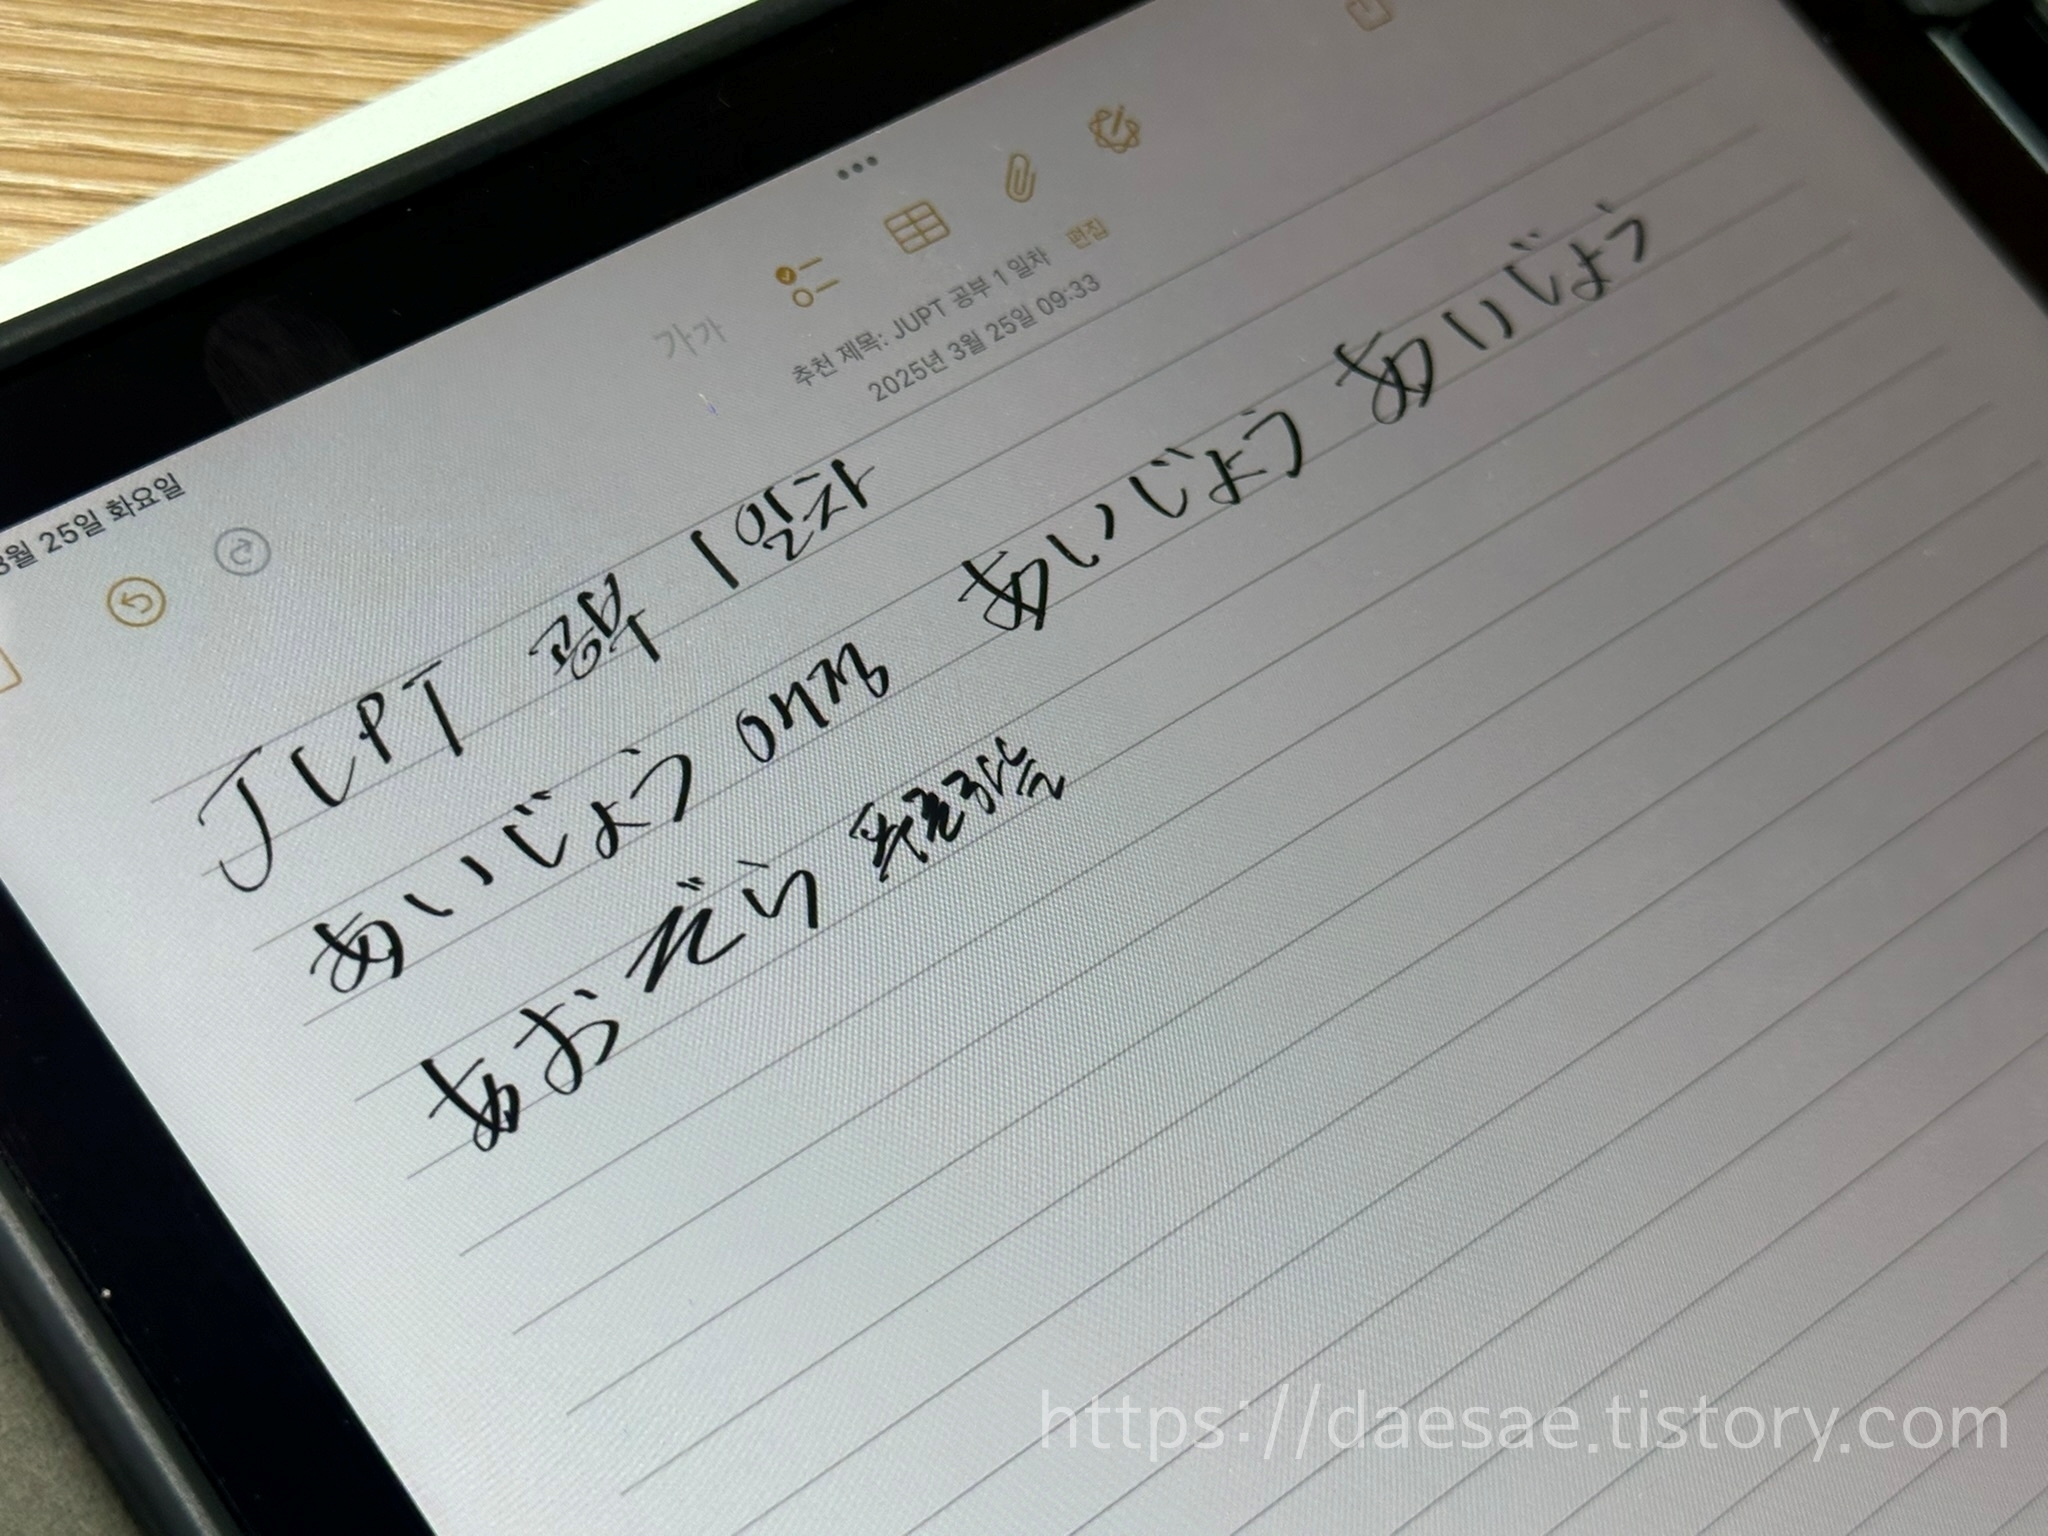 3월 25일 화요일
가가
추천 제목: JUPT 공부 1 일차 편집
2025년 3월 25일 09:33
JLPT 공부 1일차
あいじょう 애정 あいじょう あいじょう
あおぞら 푸른하늘
https://daesae.tistory.com